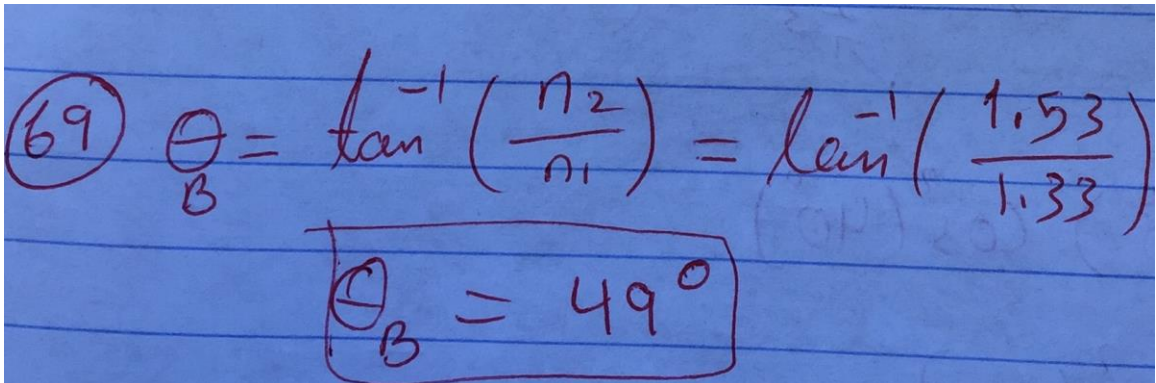 69 θ_B = tan⁻¹(n₂/n₁) = tan⁻¹(1.53/1.33)
θ_B = 49°